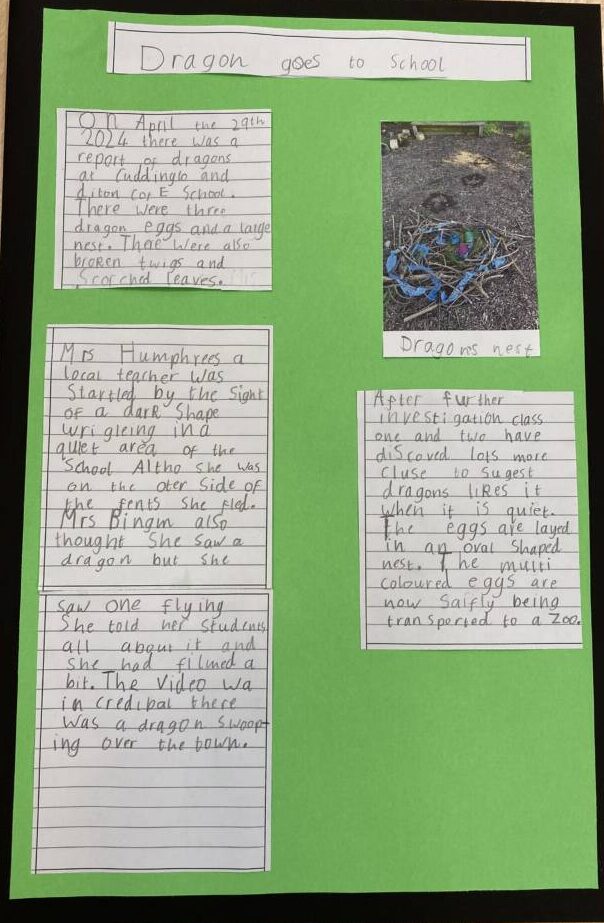 Dragon goes to school
ON April the 29th
2024 there was a
report of dragons
at Cuddingto and
diton C of E School.
There were three
dragon eggs and a large
nest. There were also
broken twigs and
Scorched leaves.
Mrs Humphrees a
local teacher was
Startled by the Sight
of a dark Shape
wrigleing in a
quiet area of the
School Altho she was
on the oter Side of
the fents She fled.
Mrs Bingm also
thought She Saw a
dragon but she
saw one flying
She told her students
all about it and
She had filmed a
bit. The Video wa
in credibal there
was a dragon Swoop-
ing over the town.
Dragons nest
After further
investigation class
one and two have
discoved lots more
cluse to sugest
dragons likes it
when it is quiet.
The eggs are layed
in an oval shaped
nest. The multi
coloured eggs are
now Saifly being
transported to a Zoo.